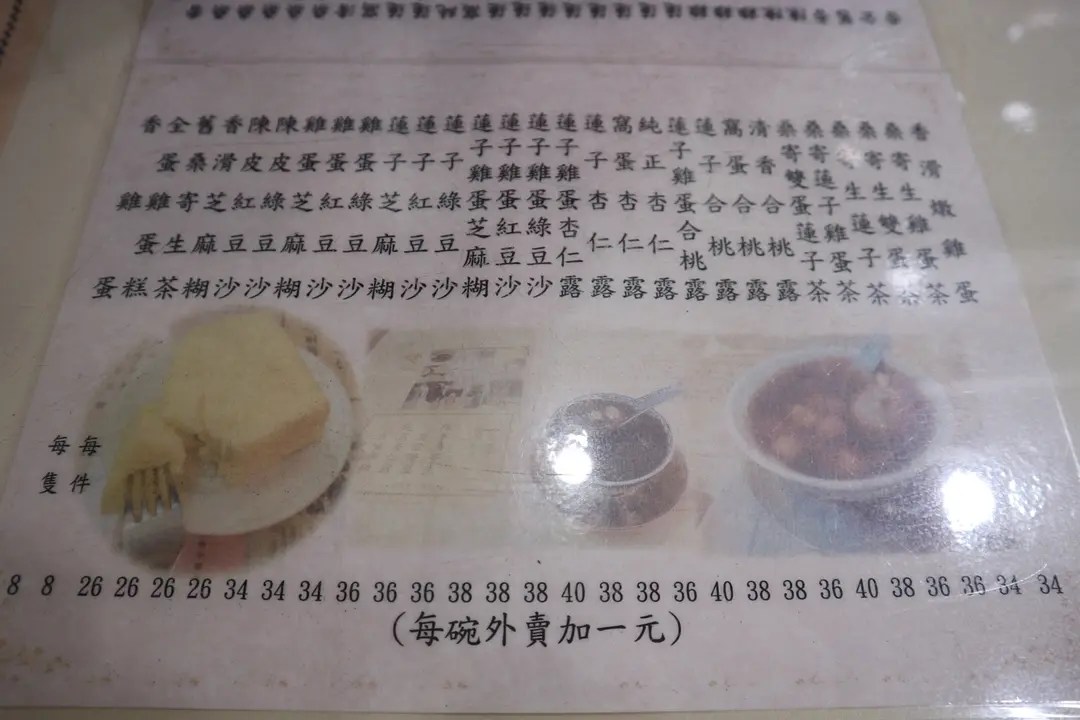 香滑燉雞蛋 34
桑寄生雞蛋茶 34
桑寄生雙蛋茶 36
桑寄生蓮子茶 36
桑寄蓮子雞蛋茶 38
桑寄雙蛋蓮子茶 40
清香合桃露 36
窩蛋合桃露 38
蓮子合桃露 38
蓮子雞蛋合桃露 40
純正杏仁露 36
窩蛋杏仁露 38
蓮子杏仁露 38
蓮子雞蛋杏仁露 40
蓮子雞蛋綠豆沙 38
蓮子雞蛋紅豆沙 38
蓮子雞蛋芝麻糊 38
蓮子綠豆沙 36
蓮子紅豆沙 36
蓮子芝麻糊 36
雞蛋綠豆沙 34
雞蛋紅豆沙 34
雞蛋芝麻糊 34
陳皮綠豆沙 26
陳皮紅豆沙 26
香滑芝麻糊 26
舊桑寄生茶 26
全蛋雞蛋糕 每件 8
香雞蛋 每隻 8
(每碗外賣加一元)